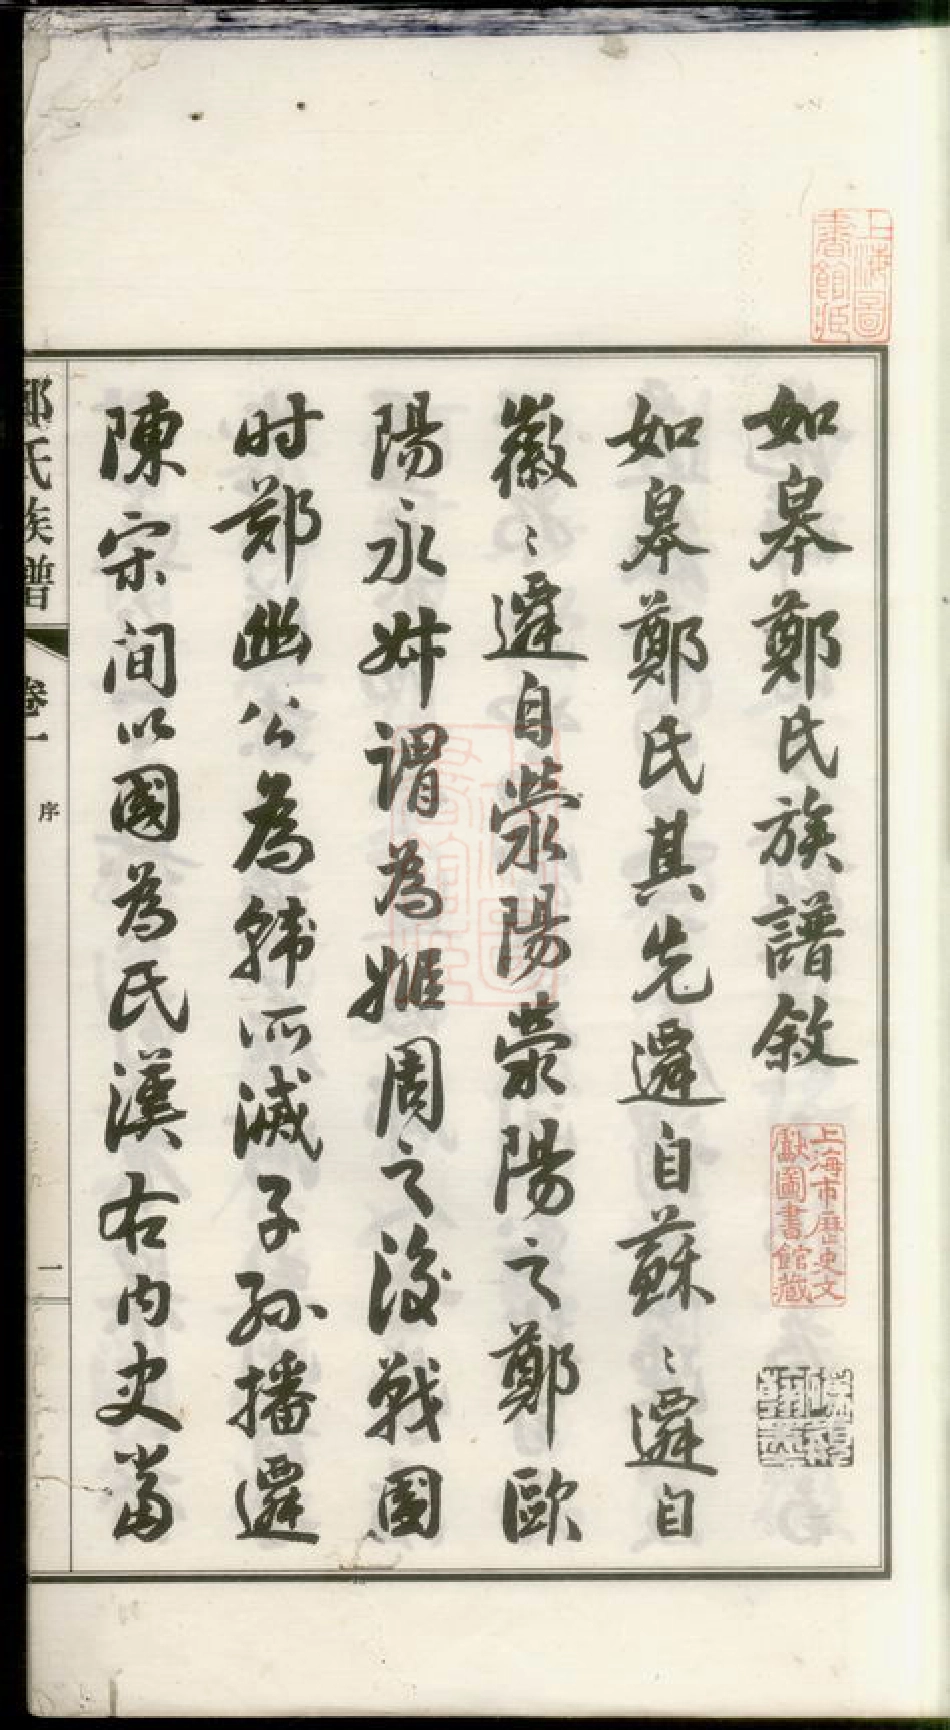 如皋鄭氏族譜敘
如皋鄭氏其先遷自蘇〻遷自
徽〻遷自滎陽滎陽之鄭歐
陽永叔謂為姬周之後戰國
时鄭幽公為韩所滅子孫播遷
陳宋间以國為氏漢右内史當
鄭氏族譜
卷一
序
一
上海圖書館藏
上海市歷史文獻圖書館藏